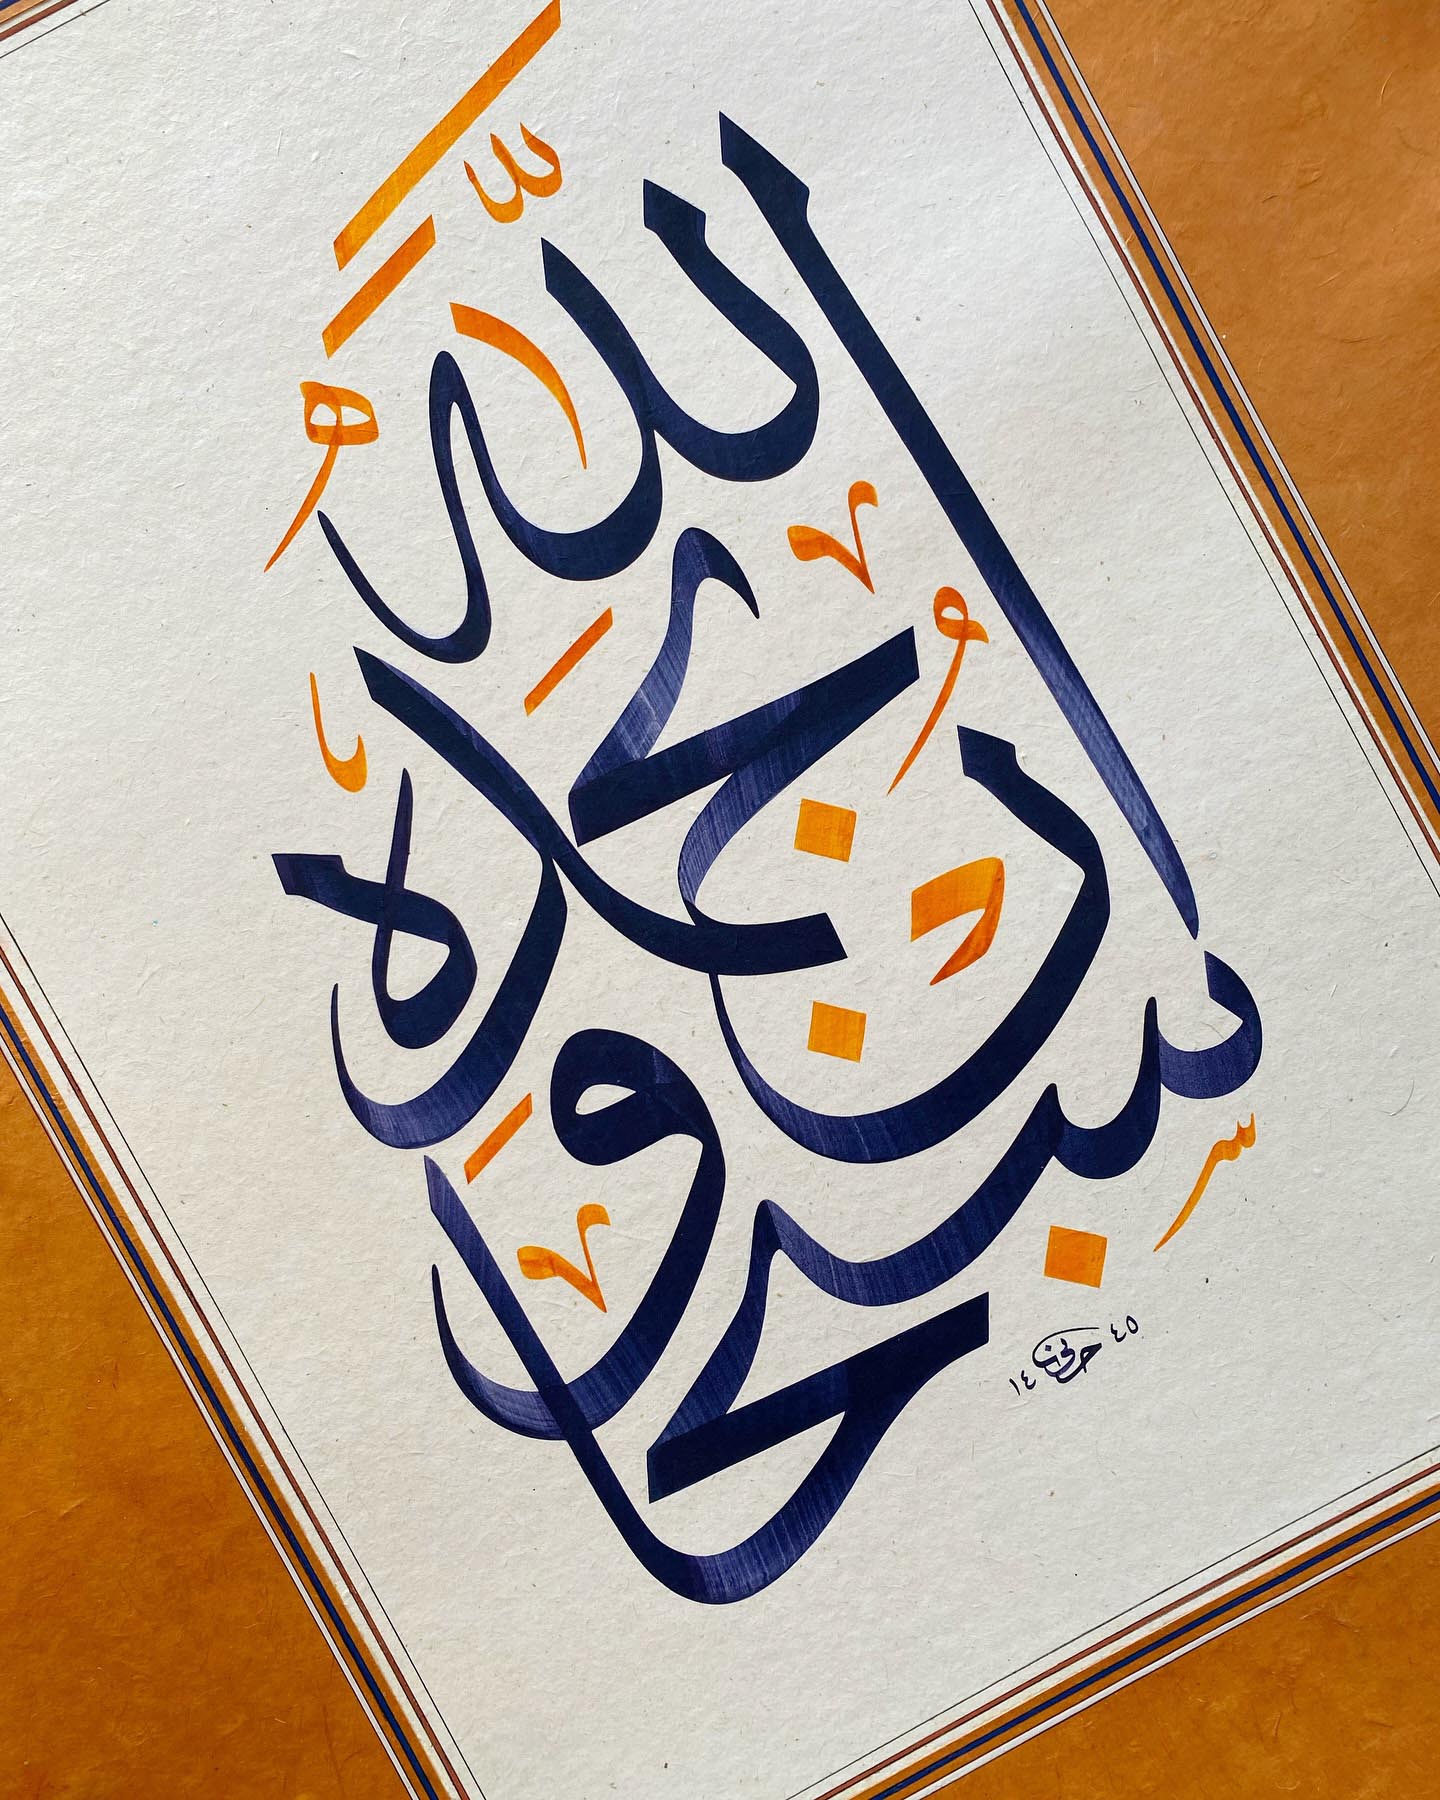 سبحان الله وبحمده
١٤ ٤٥